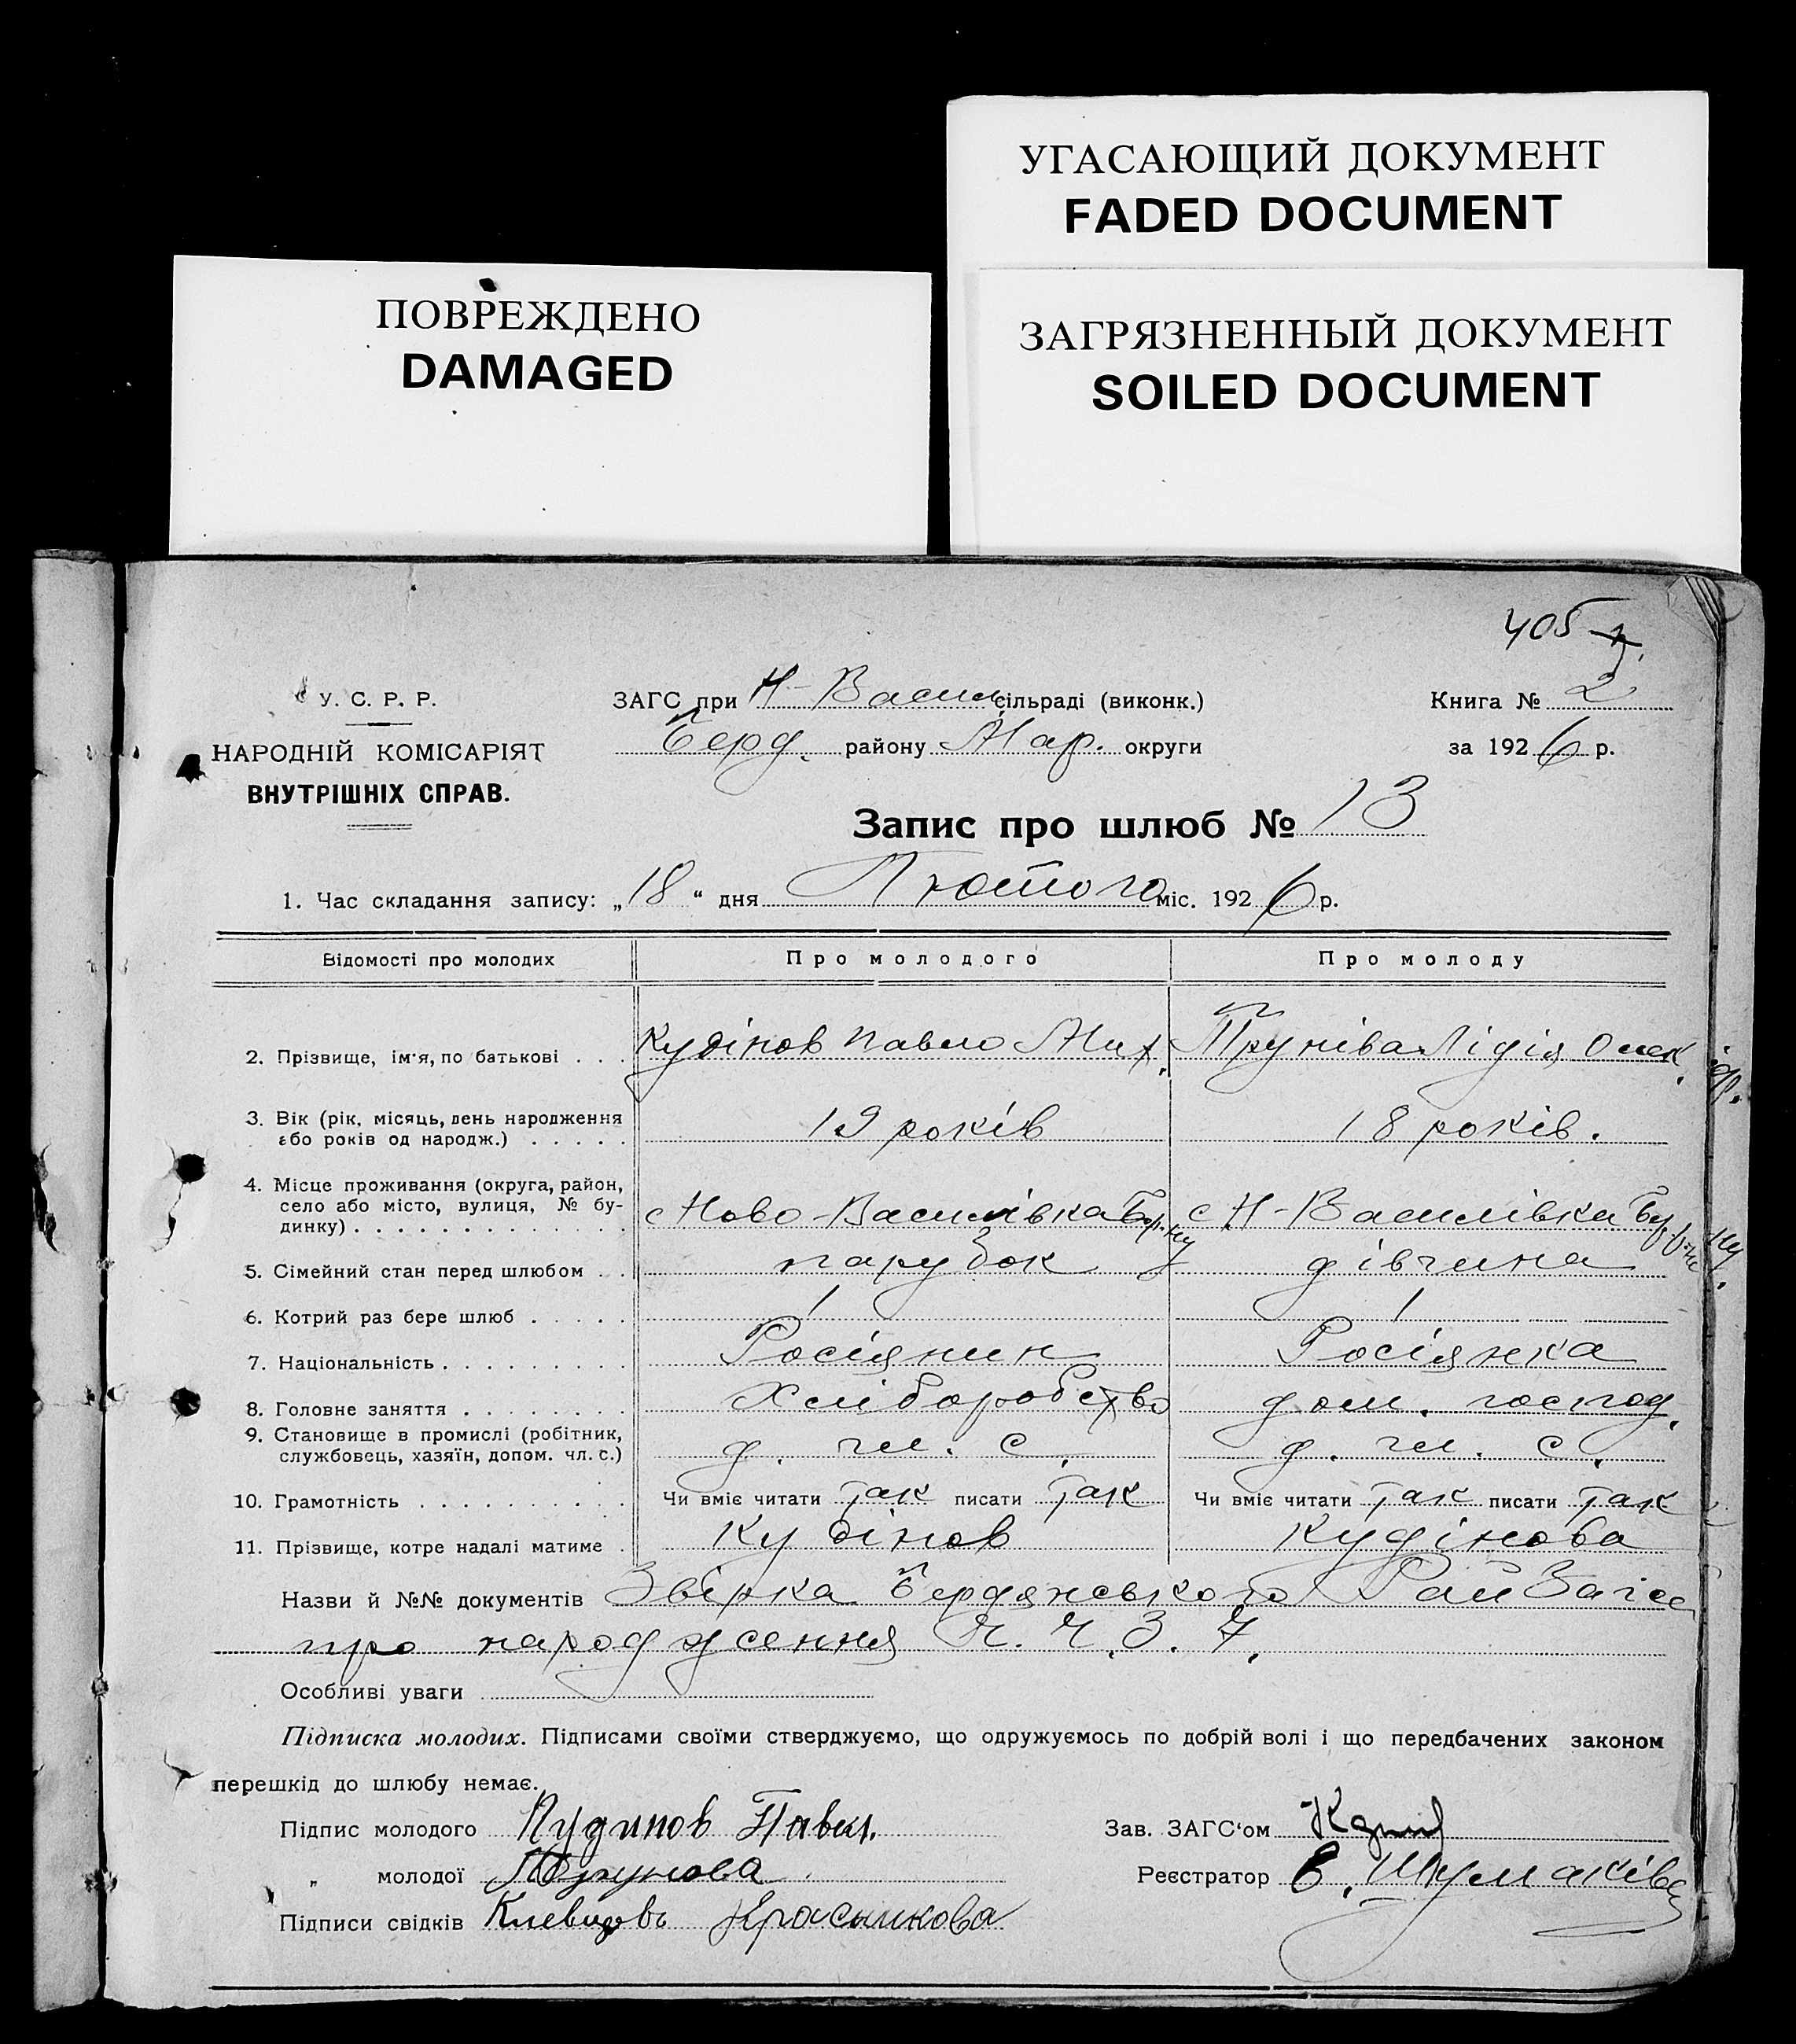 УГАСАЮЩИЙ ДОКУМЕНТ
FADED DOCUMENT
ПОВРЕЖДЕНО
DAMAGED
ЗАГРЯЗНЕННЫЙ ДОКУМЕНТ
SOILED DOCUMENT
405
У. С. Р. Р.
НАРОДНІЙ КОМІСАРІЯТ
ВНУТРІШНІХ СПРАВ.
ЗАГС при Н-Васил сільраді (виконк.)
Берд. району Мар. округи
Книга № 2
за 1926 р.
Запис про шлюб № 13
1. Час складання запису: „18“ дня Лютого міс. 1926 р.
Відомості про молодих Про молодого Про молоду
2. Прізвище, ім'я, по батькові . . . Кудінов Павло Мих. Трунівa Лідія Олек
3. Вік (рік, місяць, день народження або років од народж.) . . . . . 19 років 18 років.
4. Місце проживання (округа, район, село або місто, вулиця, № будинку) . . . . . с Ново-Василівка с Н-Василівка
5. Сімейний стан перед шлюбом . . парубок дівчина
6. Котрий раз бере шлюб . . . . . 1 1
7. Національність . . . . . . . . . Росіянин Росіянка
8. Головне заняття . . . . . . . . Хліборобство дом. господ.
9. Становище в промислі (робітник, службовець, хазяїн, допом. чл. с.) д. чл. с. д. чл. с.
10. Грамотність . . . . . . . . . . Чи вміє читати так писати так Чи вміє читати так писати так
11. Прізвище, котре надалі матиме . Кудінов Кудінова
Назви й №№ документів Звірка Бердянського РайЗагса
про народження
Особливі уваги
Підписка молодих. Підписами своїми стверджуємо, що одружуємось по добрій волі і що передбачених законом
перешкід до шлюбу немає.
Підпис молодого Кудинов Павел.
Зав. ЗАГС‘ом
„ молодої Трунова
Реєстратор
Підписи свідків Клевцовъ Красникова